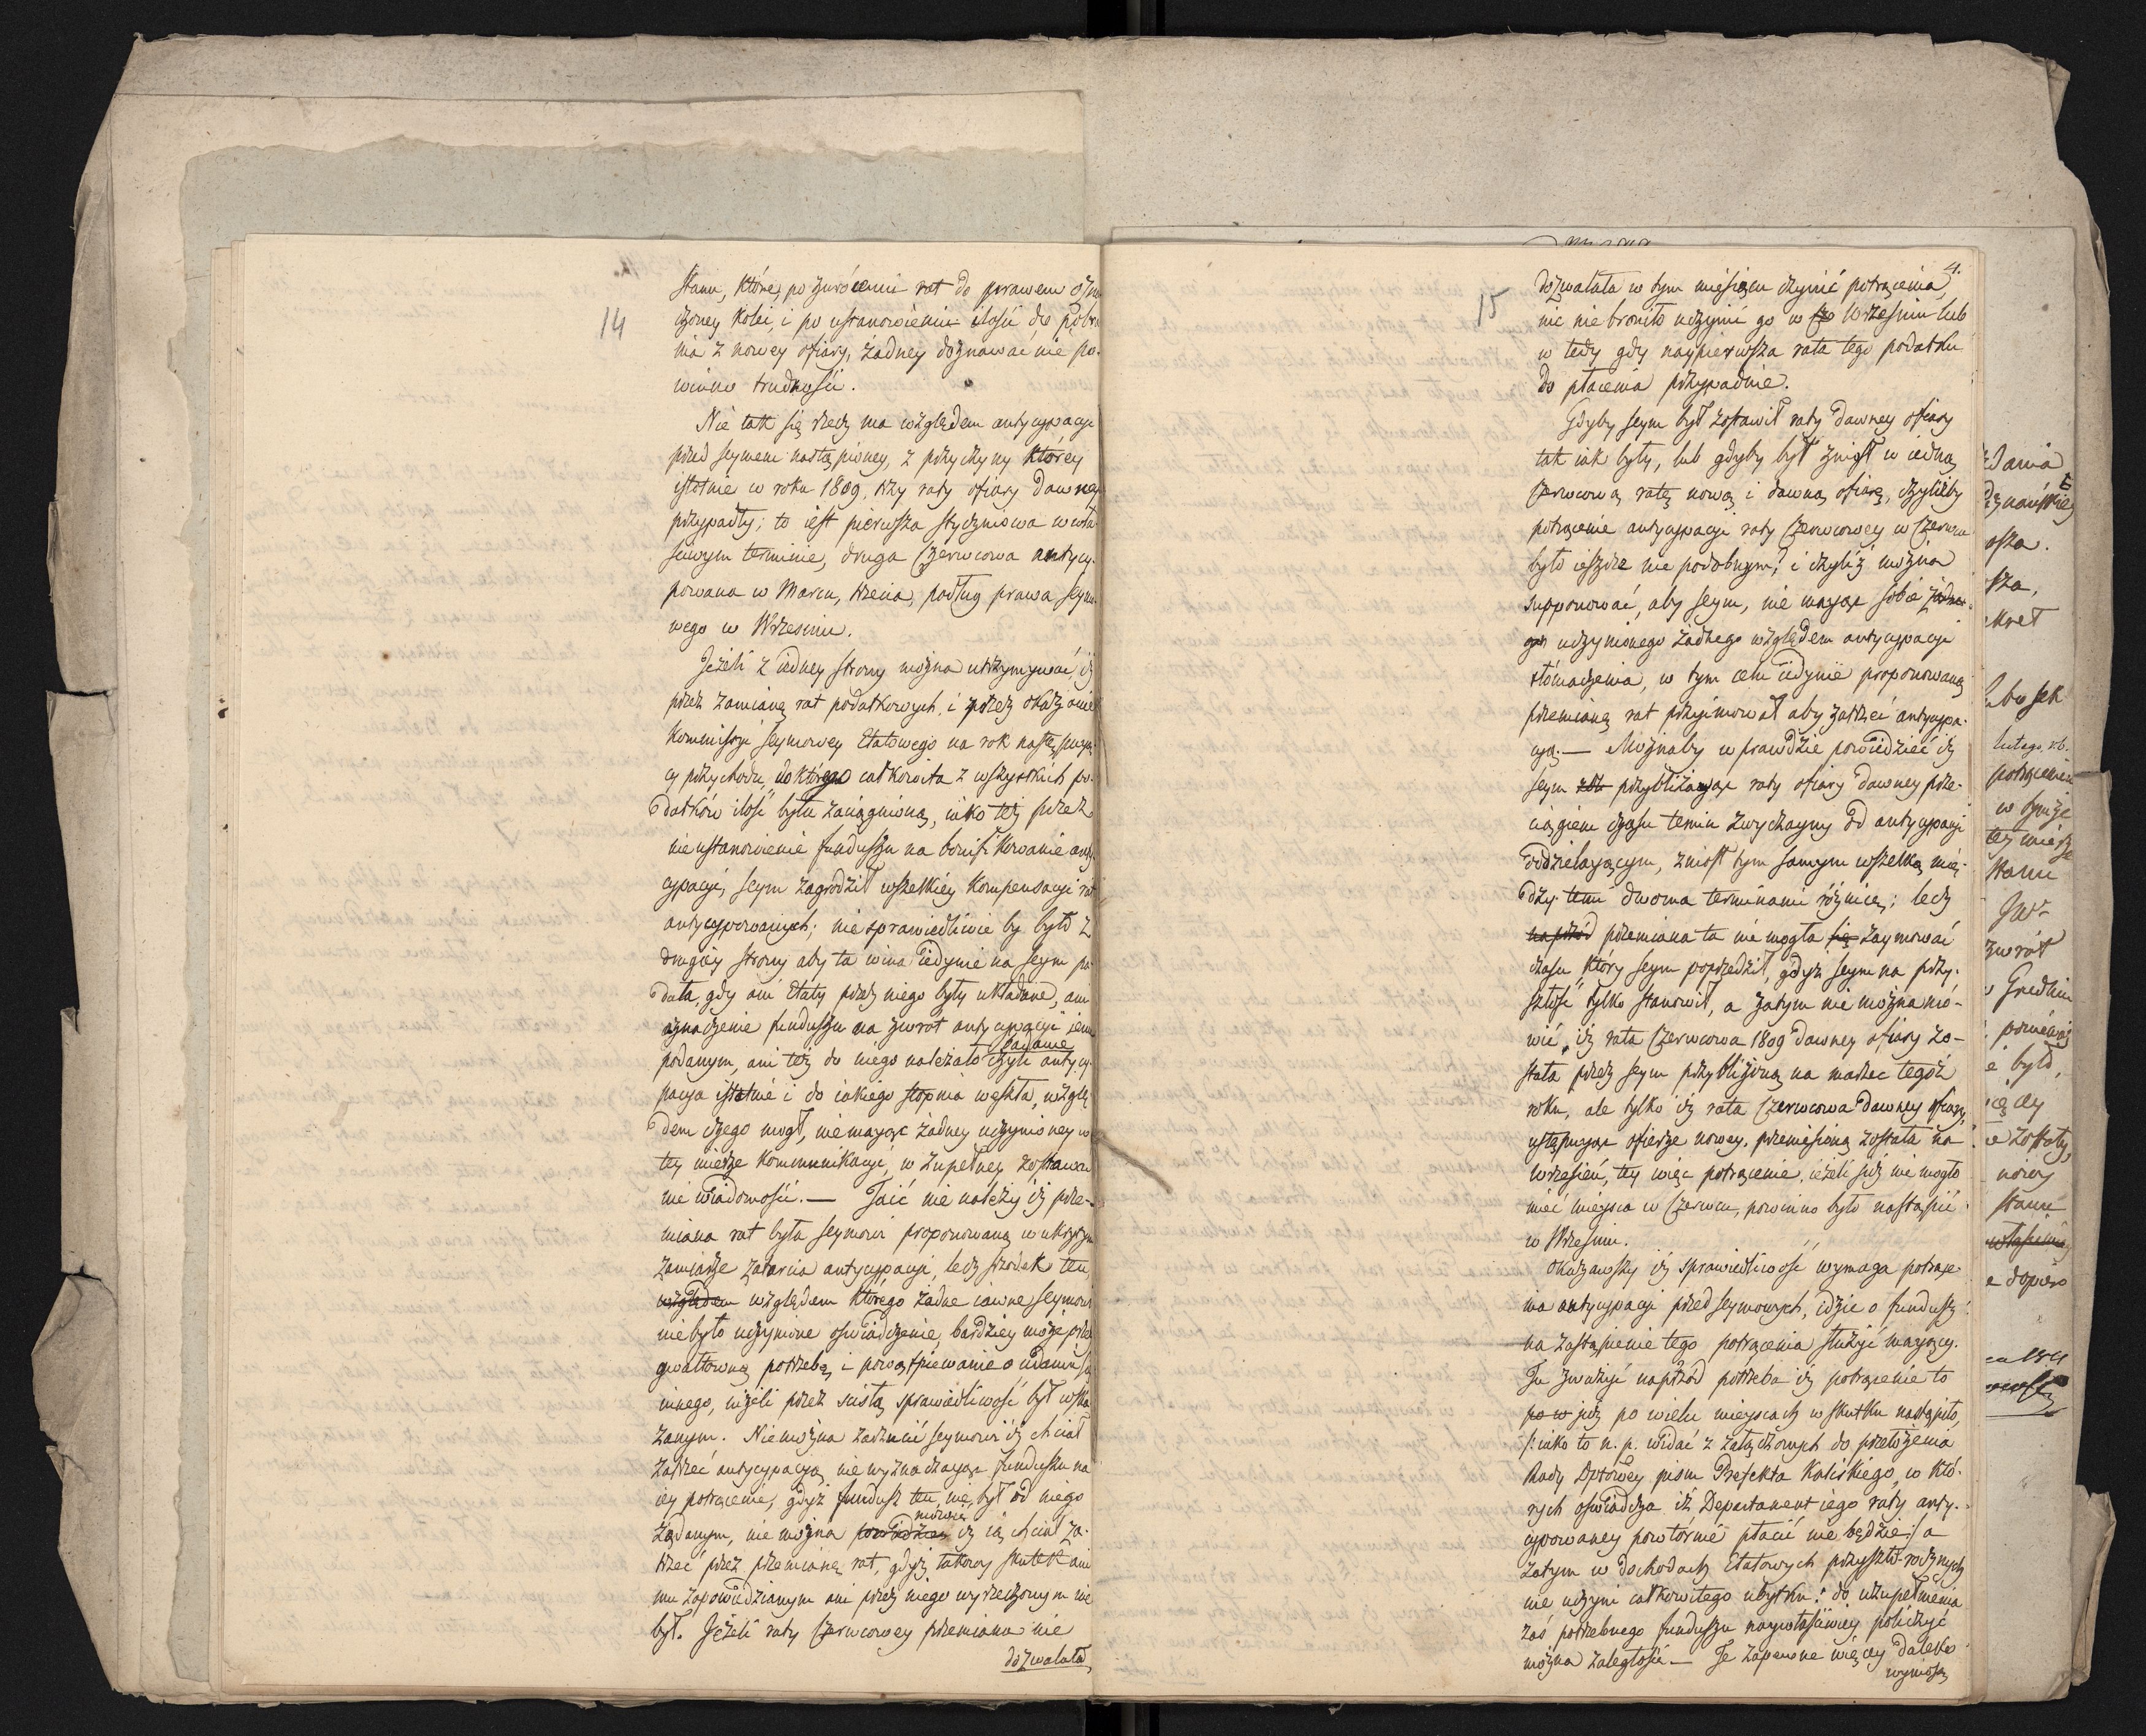 14
stanu, które, po zwróceniu rat do prawem ozna
czoney kolei, i po ustanowieniu ilości do pobra
nia z nowey ofiary, żadney doznawać nie po-
winno trudności.
Nie tak się rzecz ma względem antycypacyi
przed seymem nastąpioney, z przyczyny którey
istotnie w roku 1809, trzy raty ofiary dawney
przypadły; to iest pierwsza styczniowa w wła
sciwym terminie, druga Czerwcowa antycy-
powana w Marcu, trzecia, podług prawa seymo
wego w Wrzesniu.
Jeżeli z iedney strony można utrzymywać, iż
przez zamianę rat podatkowych, i przez okazanie
Kommissyi seymowey Etatowego na rok następuią
cy przychodu, do którego całkowita z wszystkich po-
datków ilość była zaciągnioną, iako też przez
nieustanowienie funduszu na bonifikowanie anty
cypacyi, seym zagrodził wszelkiey kompensacyi rat
antycypowanych; niesprawiedliwie by było z
drugiey strony aby ta wina iedynie na seym pa
dała, gdy ani Etaty przez niego były układane, ani
oznaczenie funduszu na zwrot antycypacyi iemu
badanie
podanym, ani też do niego należało czyli antycy-
pacya istotnie i do iakiego stopnia weszła, wzglę
dem czego mógł, nie maiąc żadney uczynioney w
tey mierze kommunikacyi, w zupełney zostawać
nie wiadomości. — Taić nie należy iż prze-
miana rat była seymowi proponowaną w ukrytym
zamiarze zatarcia antycypacyi, lecz srodek ten,
względem względem którego żadne iawne seymowi
nie było uczynione oswiadczenie, bardziey może przez
gwałtowną potrzebę i powątpiewanie o udaniu się
innego, niżeli przez scisłą sprawiedliwość był wska
zanym. Niemożna zarzucić seymowi iż chciał
zatrzeć antycypacyą nie wyznaczaiąc funduszu na
iey potrącenie, gdyż fundusz ten, nie był od niego
mówić
żądanym, nie można powiedzieć iż ią chciał za-
trzeć przez przemianę rat, gdyż takowy skutek ani
mu zapowiedzianym ani przez niego wyrzeczonym nie
był. Jeżeli raty Czerwcowey przemiana nie
dozwalała,
4.
15
dozwalała w tym miesiącu czynić potrącenia,
nic nie broniło uczynić go w Wrześniu lub
w tedy gdy naypierwsza rata tego podatku
do płacenia przypadnie.
Gdyby seym był zostawił raty dawney ofiary
tak iak były, lub gdyby był zniosł w iedną
Czerwcową ratę nową i dawną ofiarę, czyliżby
potrącenie antycypacyi raty Czerwcowey w Czerwcu
było ieszcze nie podobnym; i czyliż można
supponować, aby seym, nie maiąc sobie żadne-
go uczynionego żadnego względem antycypacyi
tłómaczenia, w tym celu iedynie proponowaną
przemianę rat przyimował aby zatrzeć antycypa-
cyą. — Możnaby w prawdzie powiedzieć iż
seym przybliżaiąc raty ofiary dawney prze-
ciągiem czasu termin zwyczayny od antycypacyi
oddzielaiącym, zniosł tym samym wszelką mię-
dzy temi dwoma terminami różnicę; lecz
naprzód przemiana ta nie mogła się zaymować
czasu który seym poprzedził, gdyż seym na przy-
szłość tylko stanowił, a zatym nie można mó-
wić, iż rata Czerwcowa 1809 dawney ofiary zo-
stała przez seym przybliżoną na marzec tegoż
roku, ale tylko iż rata Czerwcowa dawney ofiary,
ustępuiąc ofierze nowey, przeniesioną została na
Wrzesień, tey więc potrącenie, ieżeli iuż nie mogło
mieć mieysca w Czerwcu, powinno było nastąpić
w Wrześniu.
Okazawszy iż sprawiedliwość wymaga potrące-
nia antycypacyi przed seymowych, idzie o fundusz
na zastąpienie tego potrącenia służyć maiący.
Tu zważyć naprzód potrzeba iż potrącenie to
po w iuż po wielu mieyscach w skutku nastąpiło,
/: iako to n. p. widać z załączonych do przełożenia
Rady Dptowey pism Prefekta Kaliskiego, w któ-
rych oswiadcza iż Departament iego raty anty-
cypowaney powtórnie płacić nie będzie :/ a
zatym w dochodach Etatowych przyszło-rocznych
nie uczyni całkowitego ubytku: do uzupełnienia
zaś potrzebnego funduszu naywłaściwiey policzyć
można zaległości — Te zapewne więcey daleko
wyniosą
zdania
osza.
sza,
lutego, r.b.
potrącenia
w tymże
też mieysc
stanu
zwrót
w Grudniu
ponieważ
e było,
ięcey
ie zostały,
nowey
stanie
e dopiero